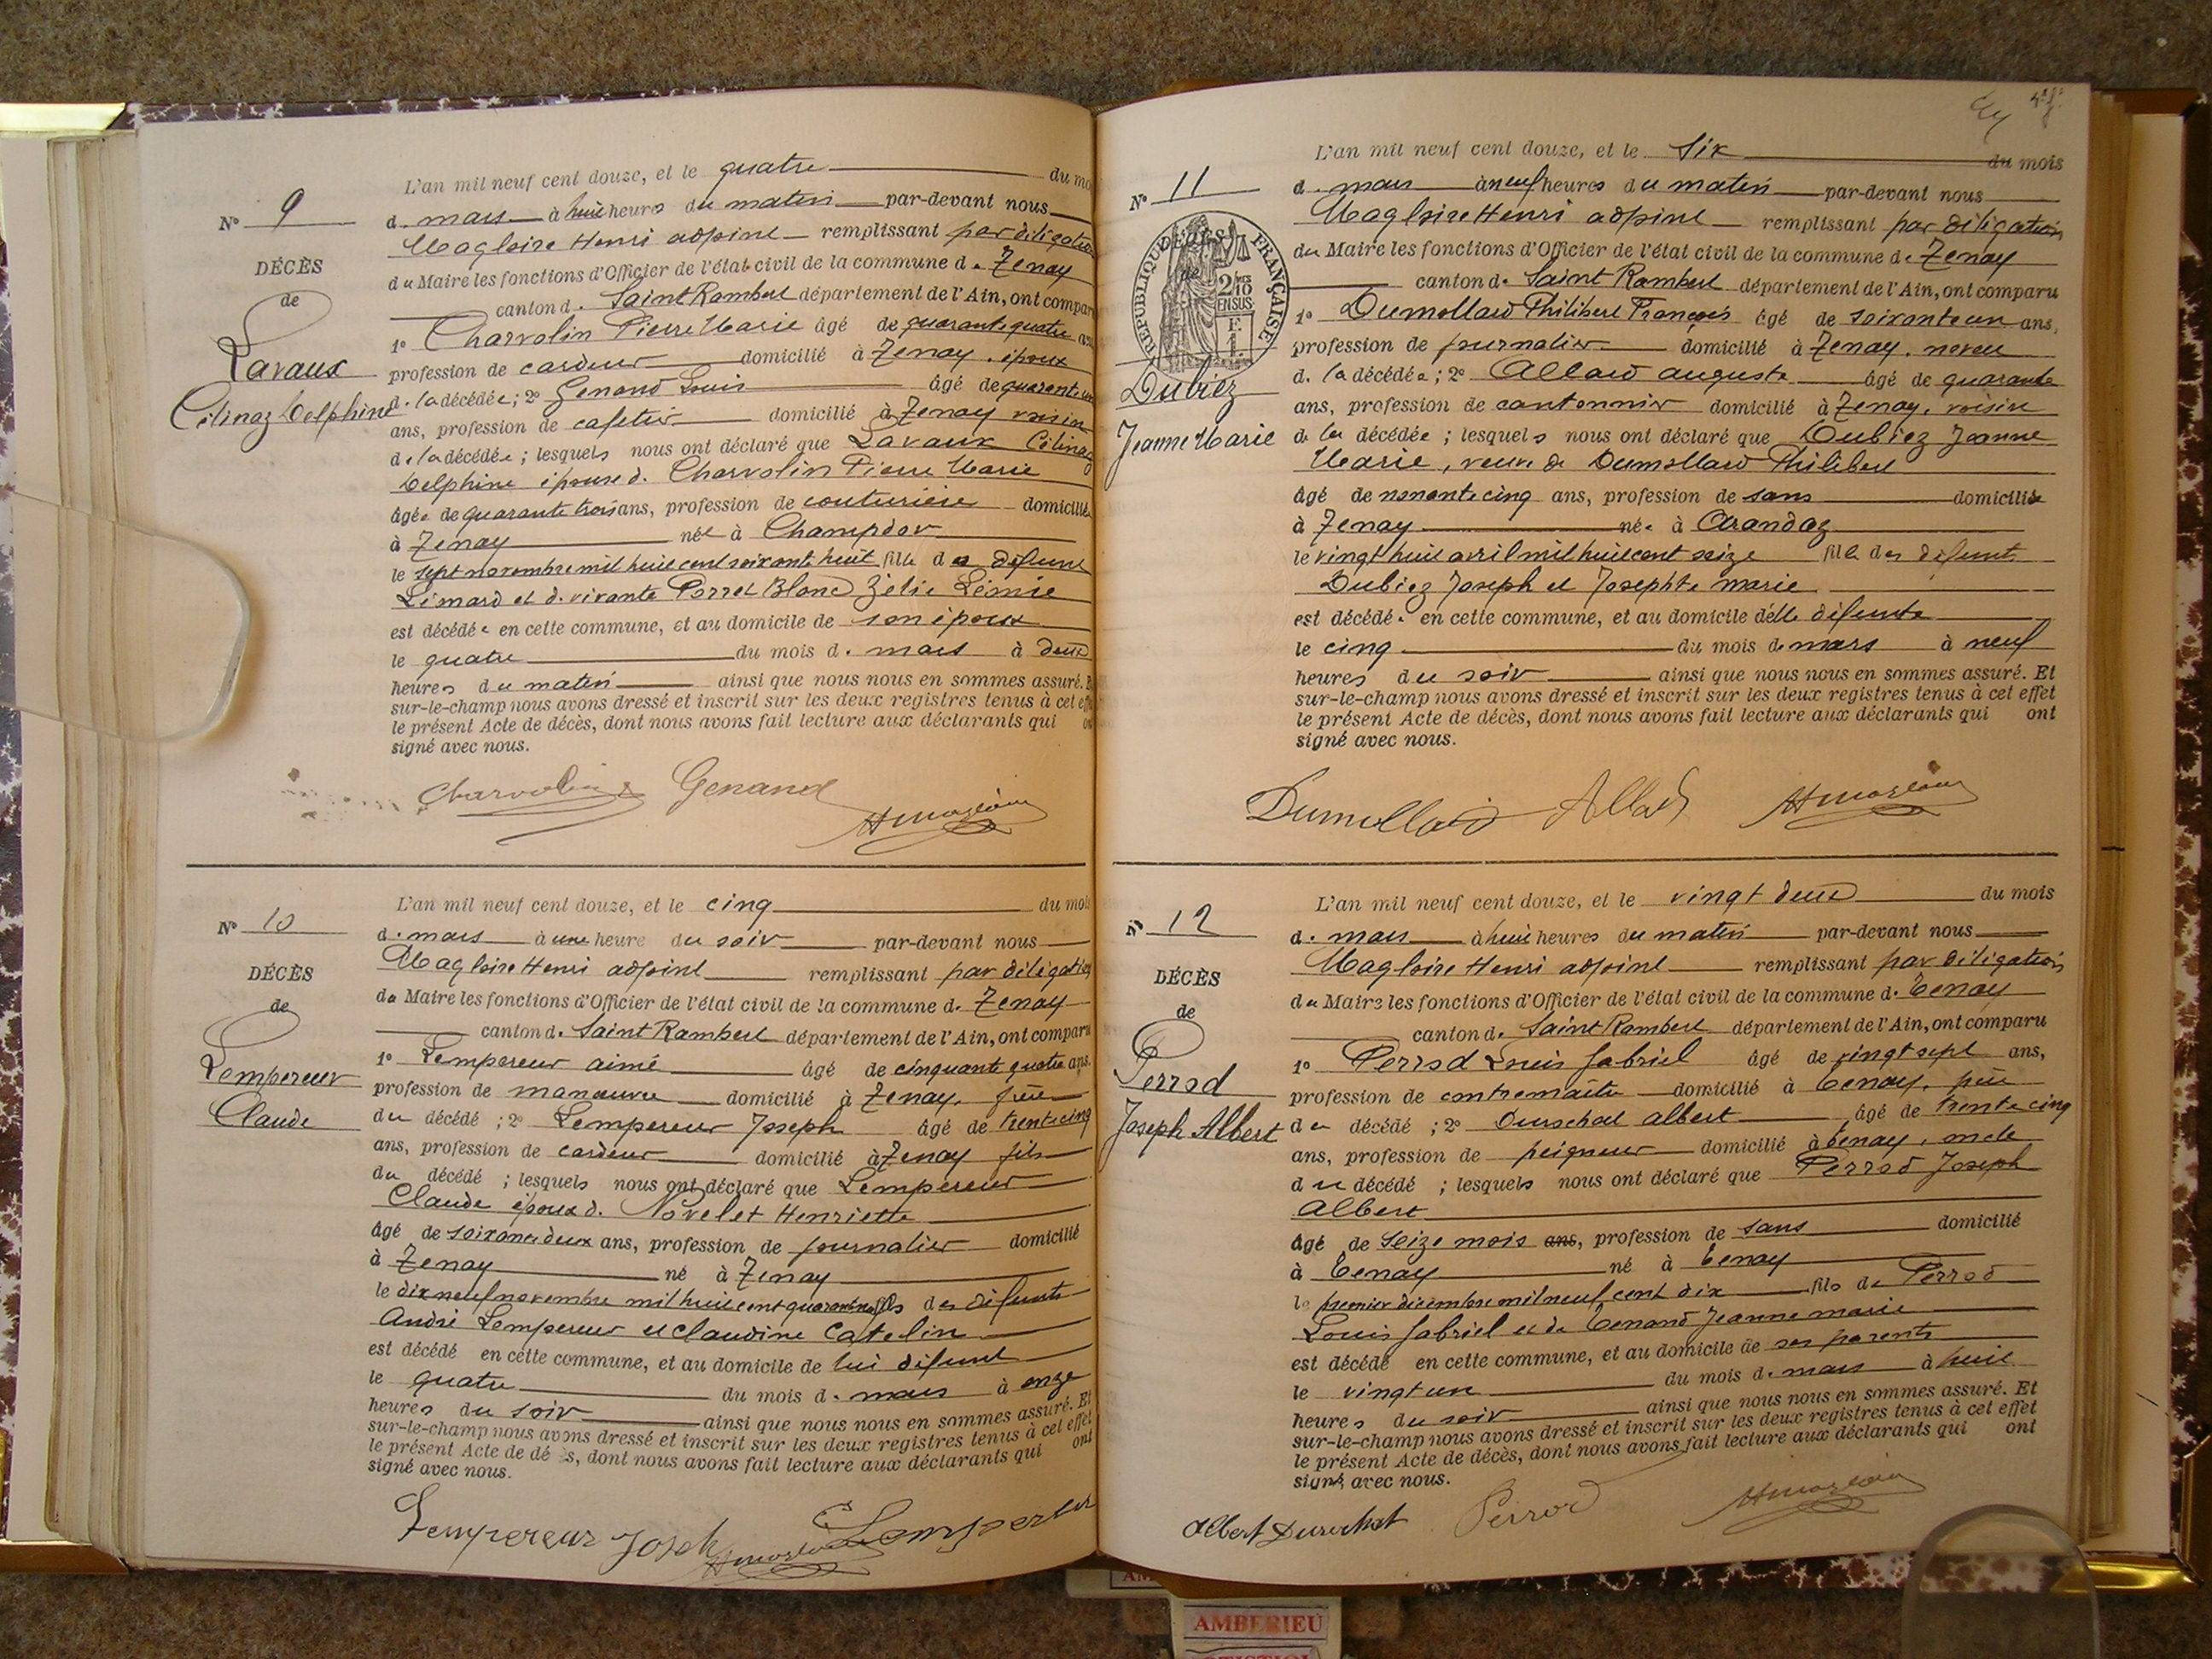 N° 9
DÉCÈS
de
Lavaux
Célinaz Delphine
L'an mil neuf cent douze, et le quatre du mo
d. mars à huit heures du matin par-devant nous
Magloire Henri adjoint remplissant par délégation
du Maire les fonctions d'Officier de l'état civil de la commune d. Tenay
canton d. Saint Rambert département de l'Ain, ont compar
1° Charvolin Pierre Marie âgé de quarante quatre an
profession de cardeur domicilié à Tenay. époux
d. la décédée; 2° Genand Louis âgé de quarante un
ans, profession de cafetier domicilié à Tenay voisin
d. la décédée; lesquels nous ont déclaré que Lavaux Célinaz
Delphine épouse d. Charvolin Pierre Marie
âgée de quarante trois ans, profession de couturière domiciliée
à Tenay née à Champdor
le sept novembre mil huit cent soixante huit fille de défunt
Lémard et d. vivante Perret Blanc Zélie
est décédée en cette commune, et au domicile de son époux
le quatre du mois d. mars à deux
heures du matin ainsi que nous nous en sommes assuré. E
sur-le-champ nous avons dressé et inscrit sur les deux registres tenus à cet effe
le présent Acte de décès, dont nous avons fait lecture aux déclarants qui on
signé avec nous.
Charvolin Genand
N° 10
DÉCÈS
de
Lempereur
Claude
L'an mil neuf cent douze, et le cinq du mois
d. mars à une heure du soir par-devant nous
Magloire Henri adjoint remplissant par délégation
du Maire les fonctions d'Officier de l'état civil de la commune d. Tenay
canton d. Saint Rambert département de l'Ain, ont comparu
1° Lempereur aimé âgé de cinquante quatre ans.
profession de manœuvre domicilié à Tenay. frère
du décédé; 2° Lempereur Joseph âgé de trente cinq
ans, profession de cardeur domicilié à Tenay fils
du décédé; lesquels nous ont déclaré que Lempereur
Claude époux d. Novelet Henriette
âgé de soixante deux ans, profession de journalier domicilié
à Tenay né à Tenay
le dix neuf novembre mil huit cent quarante neuf fils des défunts
André Lempereur et Claudine Catelin
est décédé en cette commune, et au domicile de lui défunt
le quatre du mois d. mars à onze
heures du soir ainsi que nous nous en sommes assuré. Et
sur-le-champ nous avons dressé et inscrit sur les deux registres tenus à cet effet
le présent Acte de décès, dont nous avons fait lecture aux déclarants qui ont
signé avec nous.
Lempereur Joseph Lempereur
N° 11
DÉCÈS
de
RÉPUBLIQUE FRANÇAISE
2/10
EN SUS
Dubiez
Jeanne Marie
L'an mil neuf cent douze, et le six du mois
d. mars à neuf heures du matin par-devant nous
Magloire Henri adjoint remplissant par délégation
du Maire les fonctions d'Officier de l'état civil de la commune d. Tenay
canton d. Saint Rambert département de l'Ain, ont comparu
1° Dumollard Philibert François âgé de soixante un ans,
profession de journalier domicilié à Tenay. neveu
d. la décédée; 2° Allard auguste âgé de quarante
ans, profession de cantonnier domicilié à Tenay. voisin
de la décédée; lesquels nous ont déclaré que Dubiez Jeanne
Marie, veuve de Dumollard Philibert
âgé de nonante cinq ans, profession de sans domiciliée
à Tenay née à Arandaz
le vingt huit avril mil huit cent seize fille des défunts
Dubiez Joseph et Josephte marie
est décédée en cette commune, et au domicile d'elle défunte
le cinq du mois de mars à neuf
heures du soir ainsi que nous nous en sommes assuré. Et
sur-le-champ nous avons dressé et inscrit sur les deux registres tenus à cet effet
le présent Acte de décès, dont nous avons fait lecture aux déclarants qui ont
signé avec nous.
Dumollard Allard
N° 12
DÉCÈS
de
Perrod
Joseph Albert
L'an mil neuf cent douze, et le vingt deux du mois
d. mars à huit heures du matin par-devant nous
Magloire Henri adjoint remplissant par délégation
du Maire les fonctions d'Officier de l'état civil de la commune d. Tenay
canton d. Saint Rambert département de l'Ain, ont comparu
1° Perrod Louis Gabriel âgé de vingt sept ans,
profession de contremaître domicilié à Tenay. père
du décédé; 2° Durochat albert âgé de trente cinq
ans, profession de peigneur domicilié à Tenay, oncle
du décédé; lesquels nous ont déclaré que Perrod Joseph
Albert
âgé de seize mois ans, profession de sans domicilié
à Tenay né à Tenay
le premier décembre mil neuf cent dix fils de Perrod
Louis Gabriel et de Genand Jeanne marie
est décédé en cette commune, et au domicile de ses parents
le vingt un du mois d. mars à huit
heures du soir ainsi que nous nous en sommes assuré. Et
sur-le-champ nous avons dressé et inscrit sur les deux registres tenus à cet effet
le présent Acte de décès, dont nous avons fait lecture aux déclarants qui ont
signé avec nous.
Albert Durochat Perrod
AMBERIEU